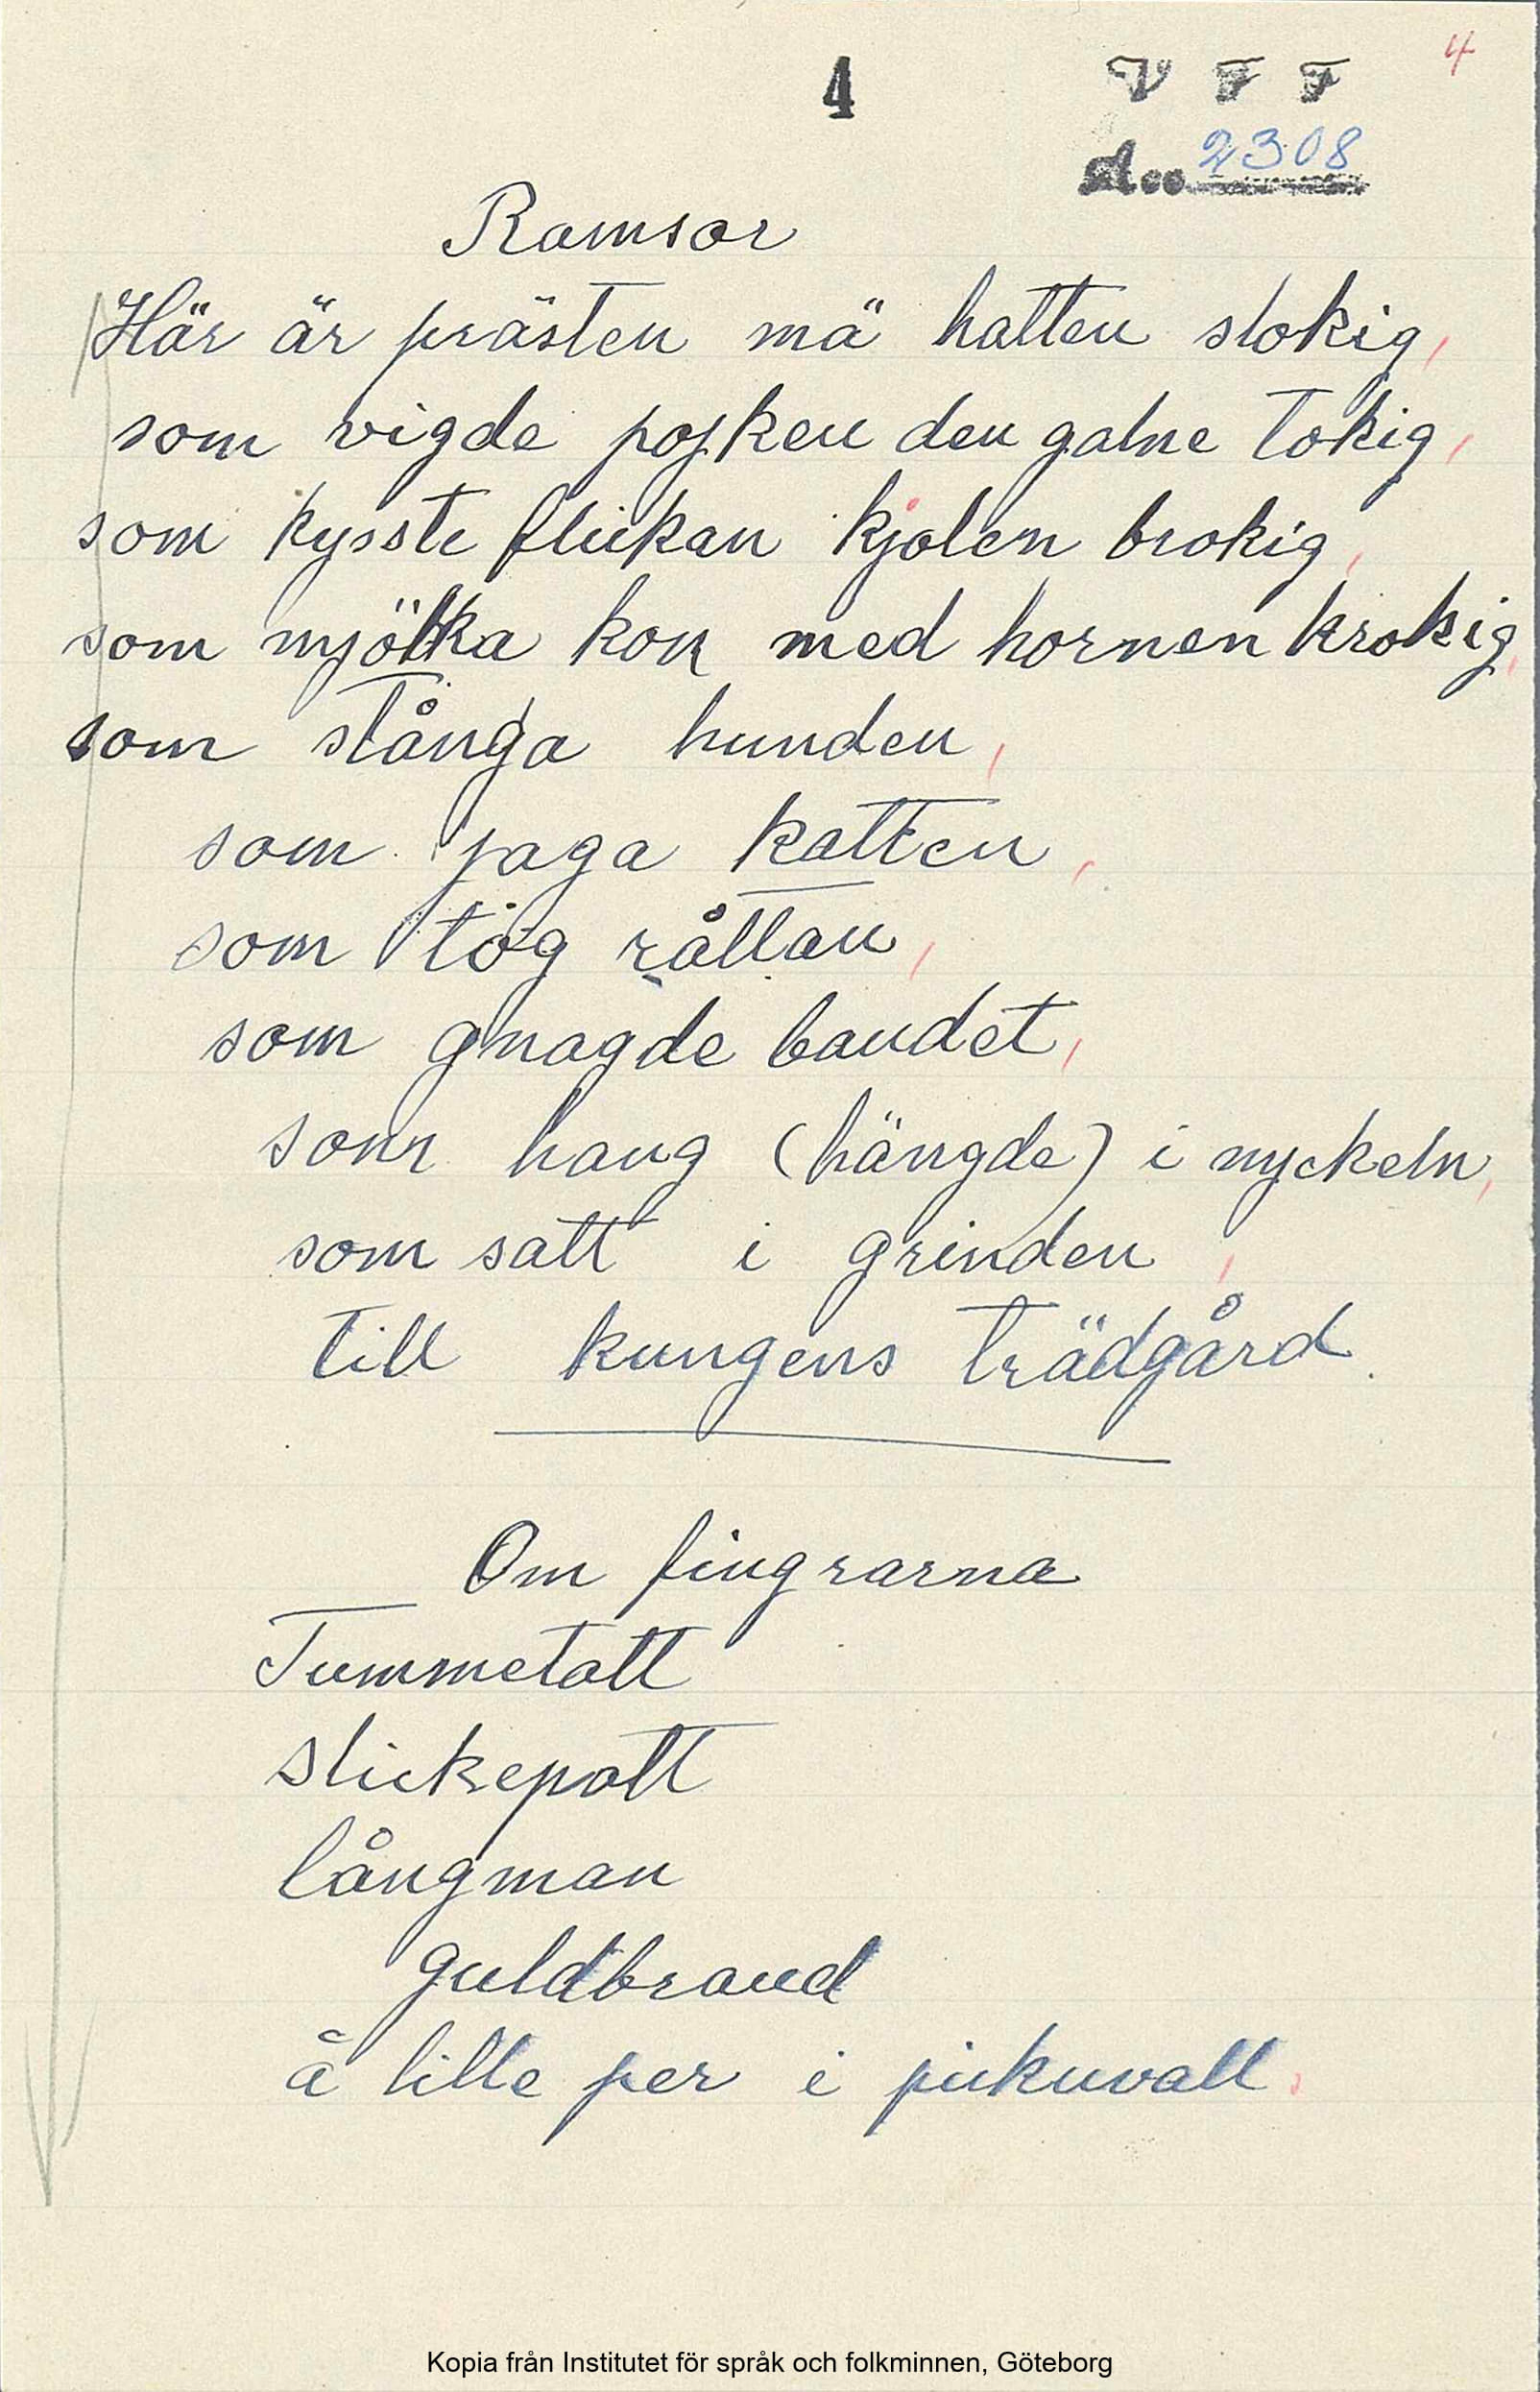 4
V F F
Acc. 2308
4
Ramsor
Här är prästen mä hatten slokig,
som vigde pojken den galne tokig,
som kysste flickan kjolen brokig,
som mjölka kon med hornen krokig,
som stånga hunden,
som jaga katten,
som tög råttan,
som gnagde bandet,
som hang (hängde) i nyckeln,
som satt i grinden,
till kungens trädgård.
Om fingrarna
Tummetott
slickepott
långman
guldbrand
å lille per i pickuvall.
Kopia från Institutet för språk och folkminnen, Göteborg